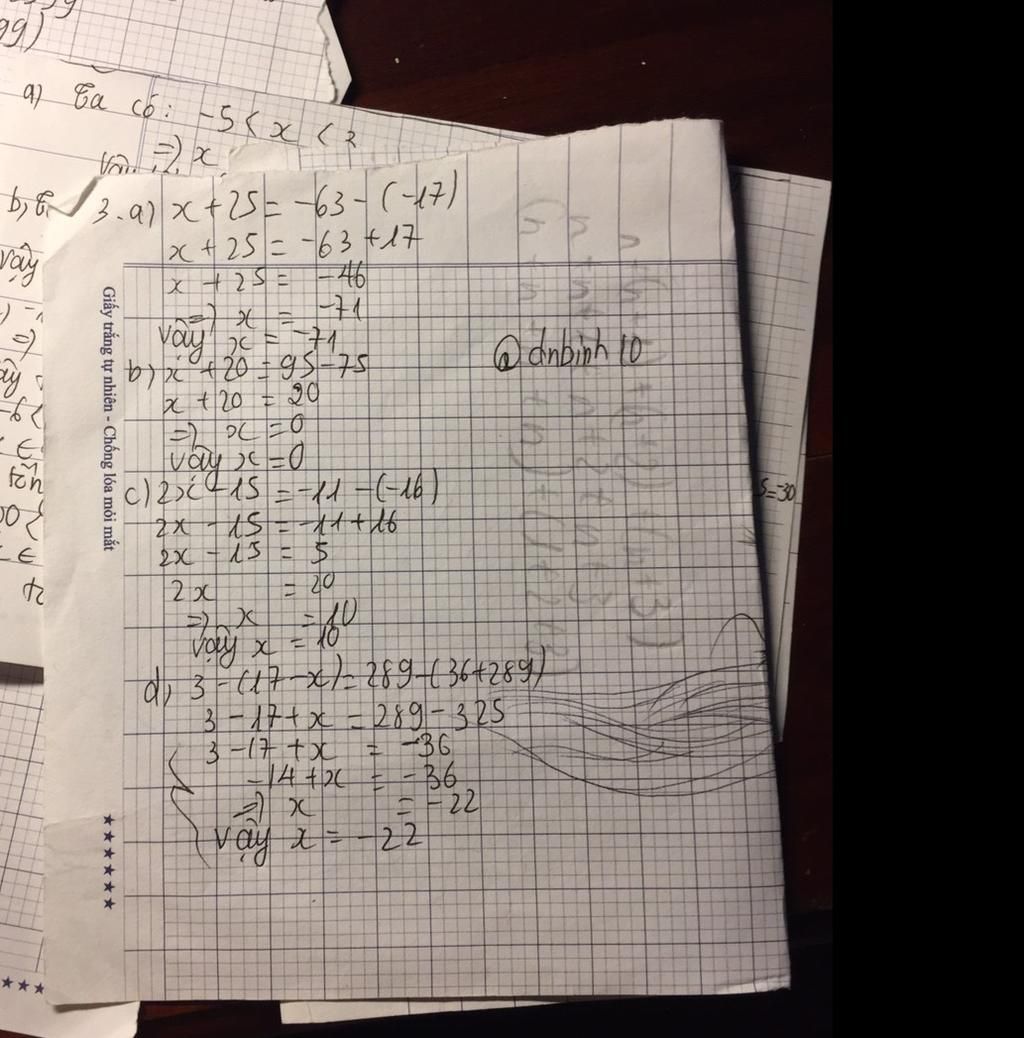 a) Ta có: -5 < x <
=> x
3. a) x + 25 = -63 - (-17)
x + 25 = -63 + 17
x + 25 = -46
=> x = -71
Vậy x = -71
b) x + 20 = 95 - 75
x + 20 = 20
=> x = 0
Vậy x = 0
c) 2x - 15 = -11 - (-16)
2x - 15 = -11 + 16
2x - 15 = 5
2x = 20
=> x = 10
Vậy x = 10
d, 3 - (17 - x) = 289 - (36 + 289)
3 - 17 + x = 289 - 325
3 - 17 + x = -36
-14 + x = -36
=> x = -22
Vậy x = -22
@dnbinh10
Giấy trắng tự nhiên - Chống lóa mỏi mắt
Vậy
5 = -30